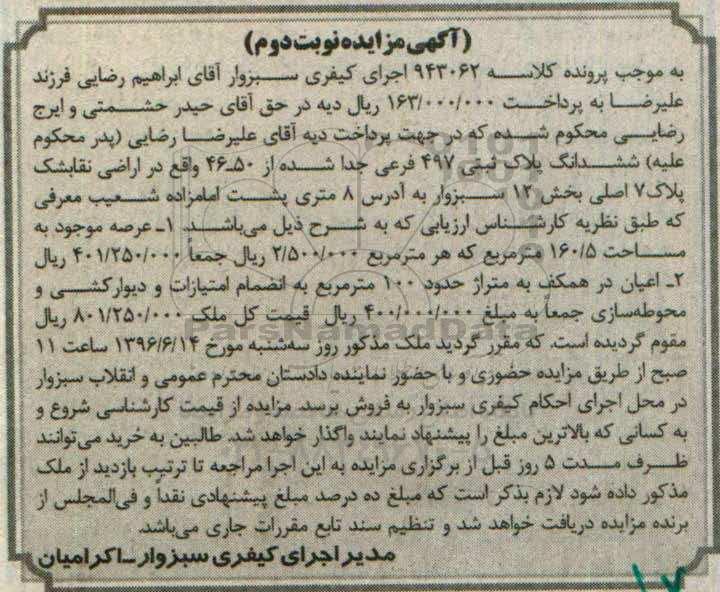 (آگهی مزایده نوبت دوم)
به موجب پرونده کلاسه ۹۴۳۰۶۲ اجرای کیفری سبزوار آقای ابراهیم رضایی فرزند
علیرضا به پرداخت ۱۶۳/۰۰۰/۰۰۰ ریال دیه در حق آقای حیدر حشمتی و ایرج
رضایی محکوم شده که در جهت پرداخت دیه آقای علیرضا رضایی (پدر محکوم
علیه) ششدانگ پلاک ثبتی ۴۹۷ فرعی جدا شده از ۵۰ـ۴۶ واقع در اراضی نقابشک
پلاک ۷ اصلی بخش ۱۲ سبزوار به آدرس ۸ متری پشت امامزاده شعیب معرفی
که طبق نظریه کارشناس ارزیابی که به شرح ذیل می‌باشد. ۱ـ عرصه موجود به
مساحت ۱۶۰/۵ مترمربع که هر مترمربع ۲/۵۰۰/۰۰۰ ریال جمعاً ۴۰۱/۲۵۰/۰۰۰ ریال
۲ـ اعیان در همکف به متراژ حدود ۱۰۰ مترمربع به انضمام امتیازات و دیوارکشی و
محوطه‌سازی جمعاً به مبلغ ۴۰۰/۰۰۰/۰۰۰ ریال قیمت کل ملک ۸۰۱/۲۵۰/۰۰۰ ریال
مقوم گردیده است. که مقرر گردید ملک مذکور روز سه‌شنبه مورخ ۱۳۹۶/۶/۱۴ ساعت ۱۱
صبح از طریق مزایده حضوری و با حضور نماینده دادستان محترم عمومی و انقلاب سبزوار
در محل اجرای احکام کیفری سبزوار به فروش برسد. مزایده از قیمت کارشناسی شروع و
به کسانی که بالاترین مبلغ را پیشنهاد نمایند واگذار خواهد شد. طالبین به خرید می‌توانند
ظرف مدت ۵ روز قبل از برگزاری مزایده به این اجرا مراجعه تا ترتیب بازدید از ملک
مذکور داده شود لازم بذکر است که مبلغ ده درصد مبلغ پیشنهادی نقداً و فی‌المجلس از
برنده مزایده دریافت خواهد شد و تنظیم سند تابع مقررات جاری می‌باشد.
مدیر اجرای کیفری سبزوار ـ اکرامیان
ParsNamadData
۱۷